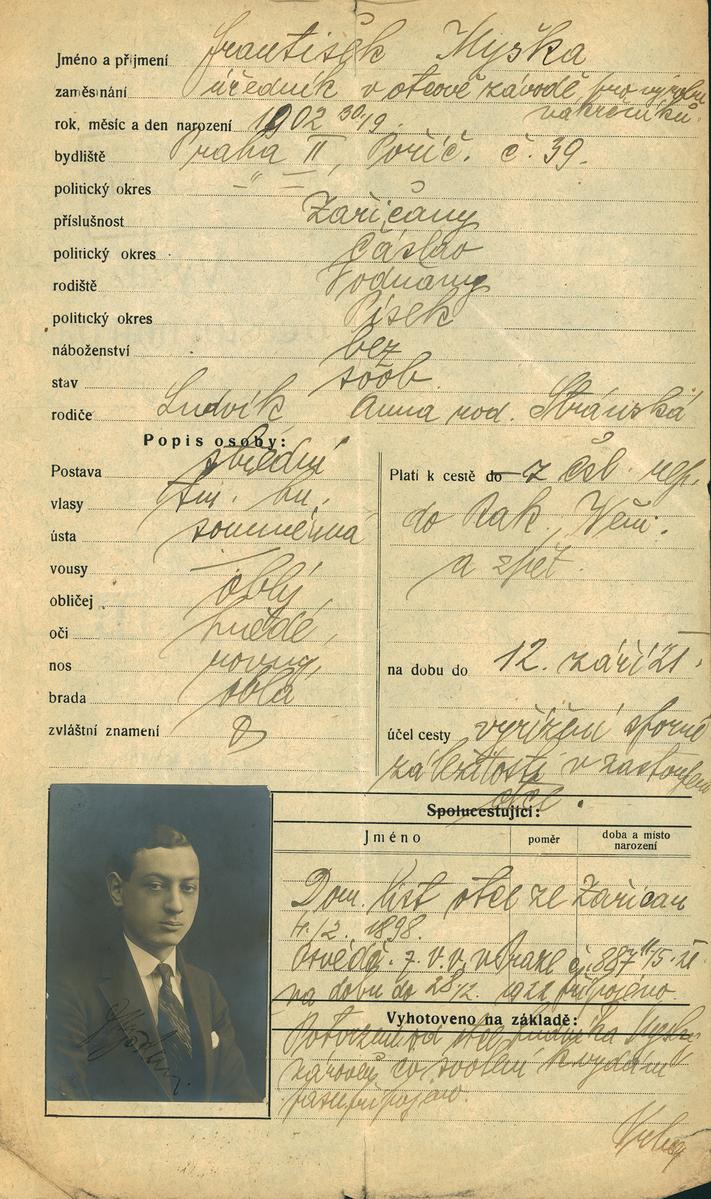 Jméno a příjmení František Myška
zaměstnání úředník v otcově závodě pro výrobu
nákrčníků.
rok, měsíc a den narození 1902 30/9.
bydliště Praha II, Poříč. č. 39.
politický okres —"—
příslušnost Zaříčany
politický okres Čáslav
rodiště Vodňany
politický okres Písek
náboženství bez
stav svob.
rodiče Ludvík Anna rod. Stránská
Popis osoby:
Postava střední
vlasy tm. hn.
ústa souměrná
vousy —
obličej oblý
oči hnědé,
nos rovný,
brada oblá
zvláštní znamení
Platí k cestě do z čsl. rep.
do Rak. Něm.
a zpět.
na dobu do 12. září 21.
účel cesty vyřízení sporné
záležitosti v zastoupení
otce.
Spolucestující:
Jméno poměr doba a místo
narození
Dom. list otce ze Zaříčan
1898.
Osvědč. z. v. v. v Praze č. 887 11/5. 21
na dobu do 28/2. 1922 připojeno.
Vyhotoveno na základě:
Potvrzení od otce Ludvíka Myšky
zároveň co svolení k vydání
pasu připojeno.